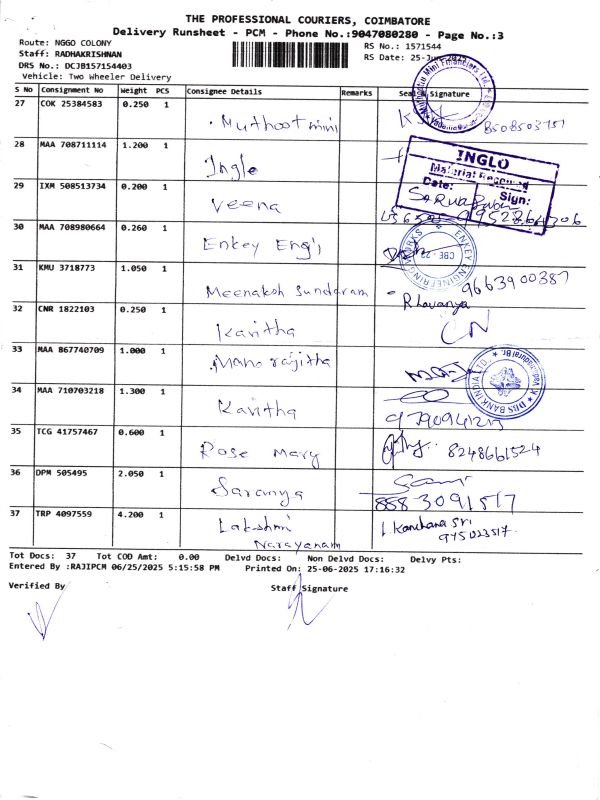 THE PROFESSIONAL COURIERS, COIMBATORE
Delivery Runsheet - PCM - Phone No.:9047080280 - Page No.:3
Route: NGGO COLONY
RS No.: 1571544
Staff: RADHAKRISHNAN
RS Date: 25-Jun-2025
DRS No.: DCJB157154403
Vehicle: Two Wheeler Delivery
S No Consignment No Weight PCS Consignee Details Remarks Seal & Signature
27 COK 25384583 0.250 1 Muthoot mini 8508503751
28 MAA 708711114 1.200 1 Ingle
INGLO
Material Received
Date: Sign:
29 IXM 508513734 0.200 1 Veena
30 MAA 708980664 0.260 1 Enkey Eng'i
ENKEY ENGINEERING WORKS
31 KMU 3718773 1.050 1 Meenaksh Sundaram R Lavanya 9663900387
32 CNR 1822103 0.250 1 Kavitha
33 MAA 867740709 1.000 1 Mano rajitha
DBS BANK INDIA LTD.
34 MAA 710703218 1.300 1 Kavitha
35 TCG 41757467 0.600 1 Rose mary 8248661524
36 DPM 505495 2.050 1 Saranya 8883091517
37 TRP 4097559 4.200 1 Lakshmi Narayanam L Kanchana Sri
Tot Docs: 37 Tot COD Amt: 0.00 Delvd Docs: Non Delvd Docs: Delvy Pts:
Entered By :RAJIPCM 06/25/2025 5:15:58 PM Printed On: 25-06-2025 17:16:32
Verified By Staff Signature